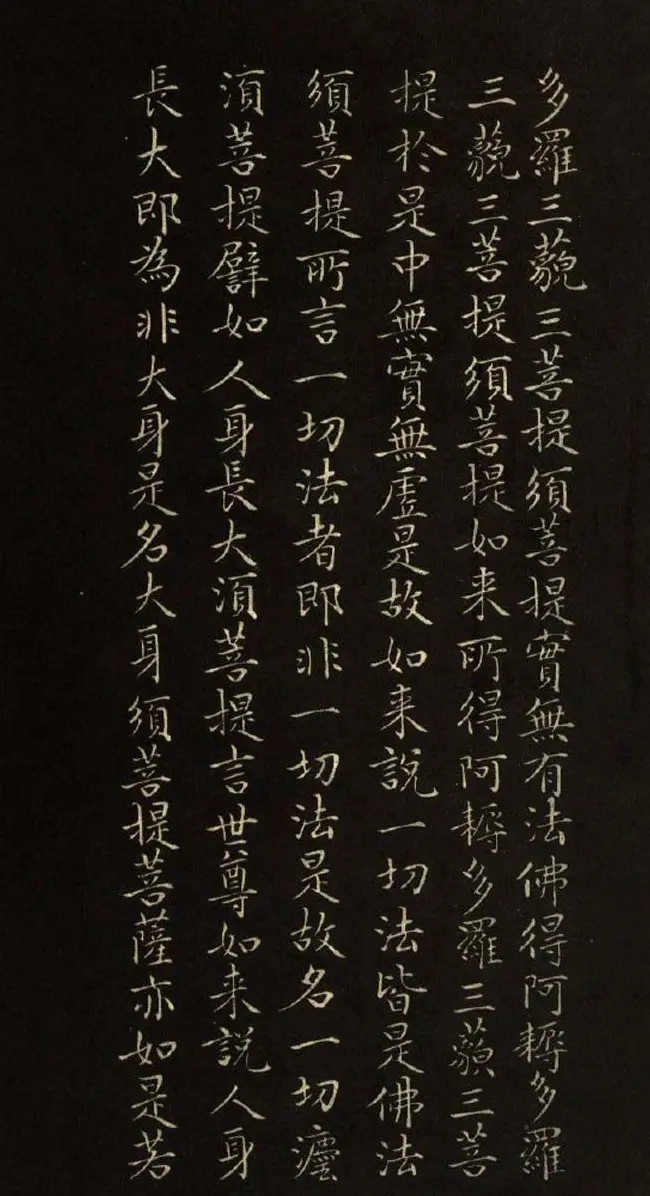 多羅三藐三菩提須菩提實無有法佛得阿耨多羅
三藐三菩提須菩提如来所得阿耨多羅三藐三菩
提於是中無實無虛是故如来說一切法皆是佛法
須菩提所言一切法者即非一切法是故名一切灋
湏菩提譬如人身長大湏菩提言世尊如来說人身
長大即為非大身是名大身須菩提菩薩亦如是若